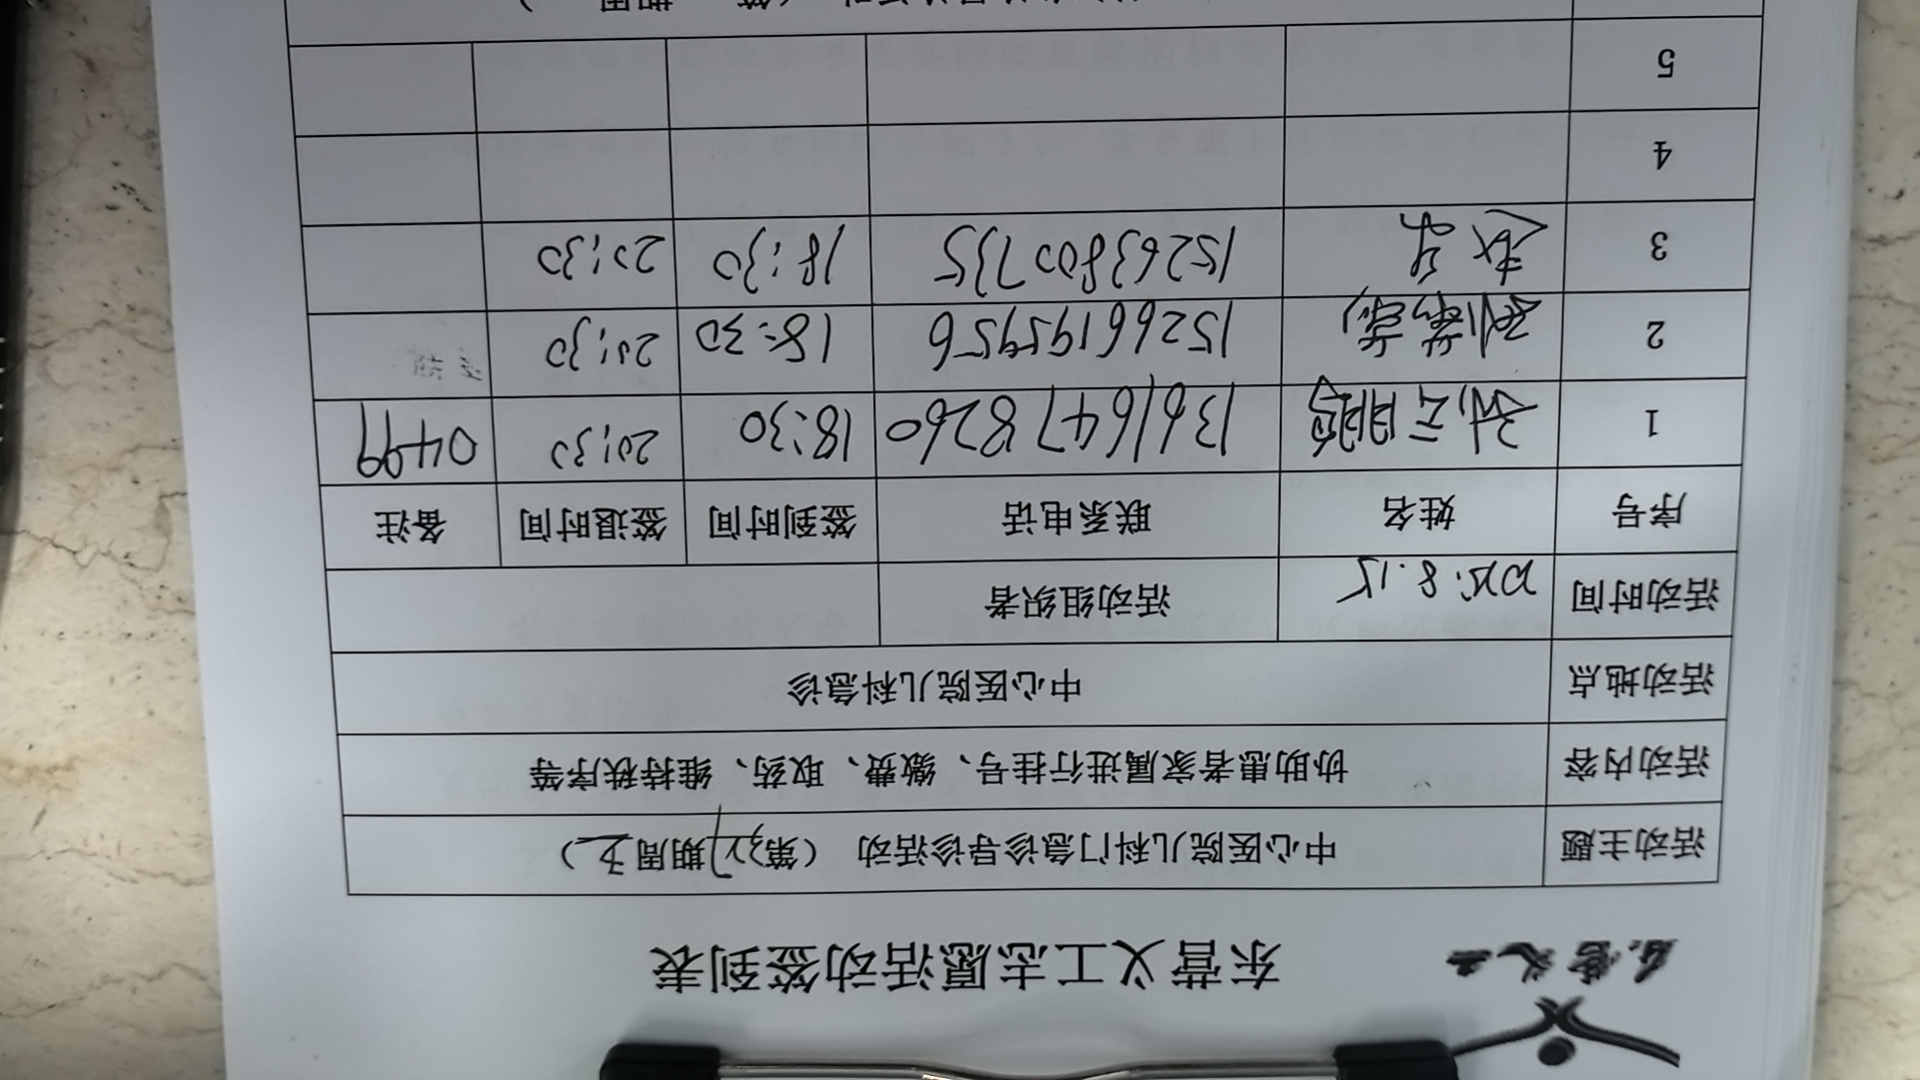 东营义工
东营义工志愿活动签到表
活动主题 中心医院儿科门急诊导诊活动 （第 期周五）
活动内容 协助患者家属进行挂号、缴费、取药、维持秩序等
活动地点 中心医院儿科急诊
活动时间 8.15 活动组织者
序号 姓名 联系电话 签到时间 签退时间 备注
1 刘云鹏 13616478260 18:30 20:30 0499
2 15266195956 18:30 20:30
3 15263800735 18:30 20:30
4
5